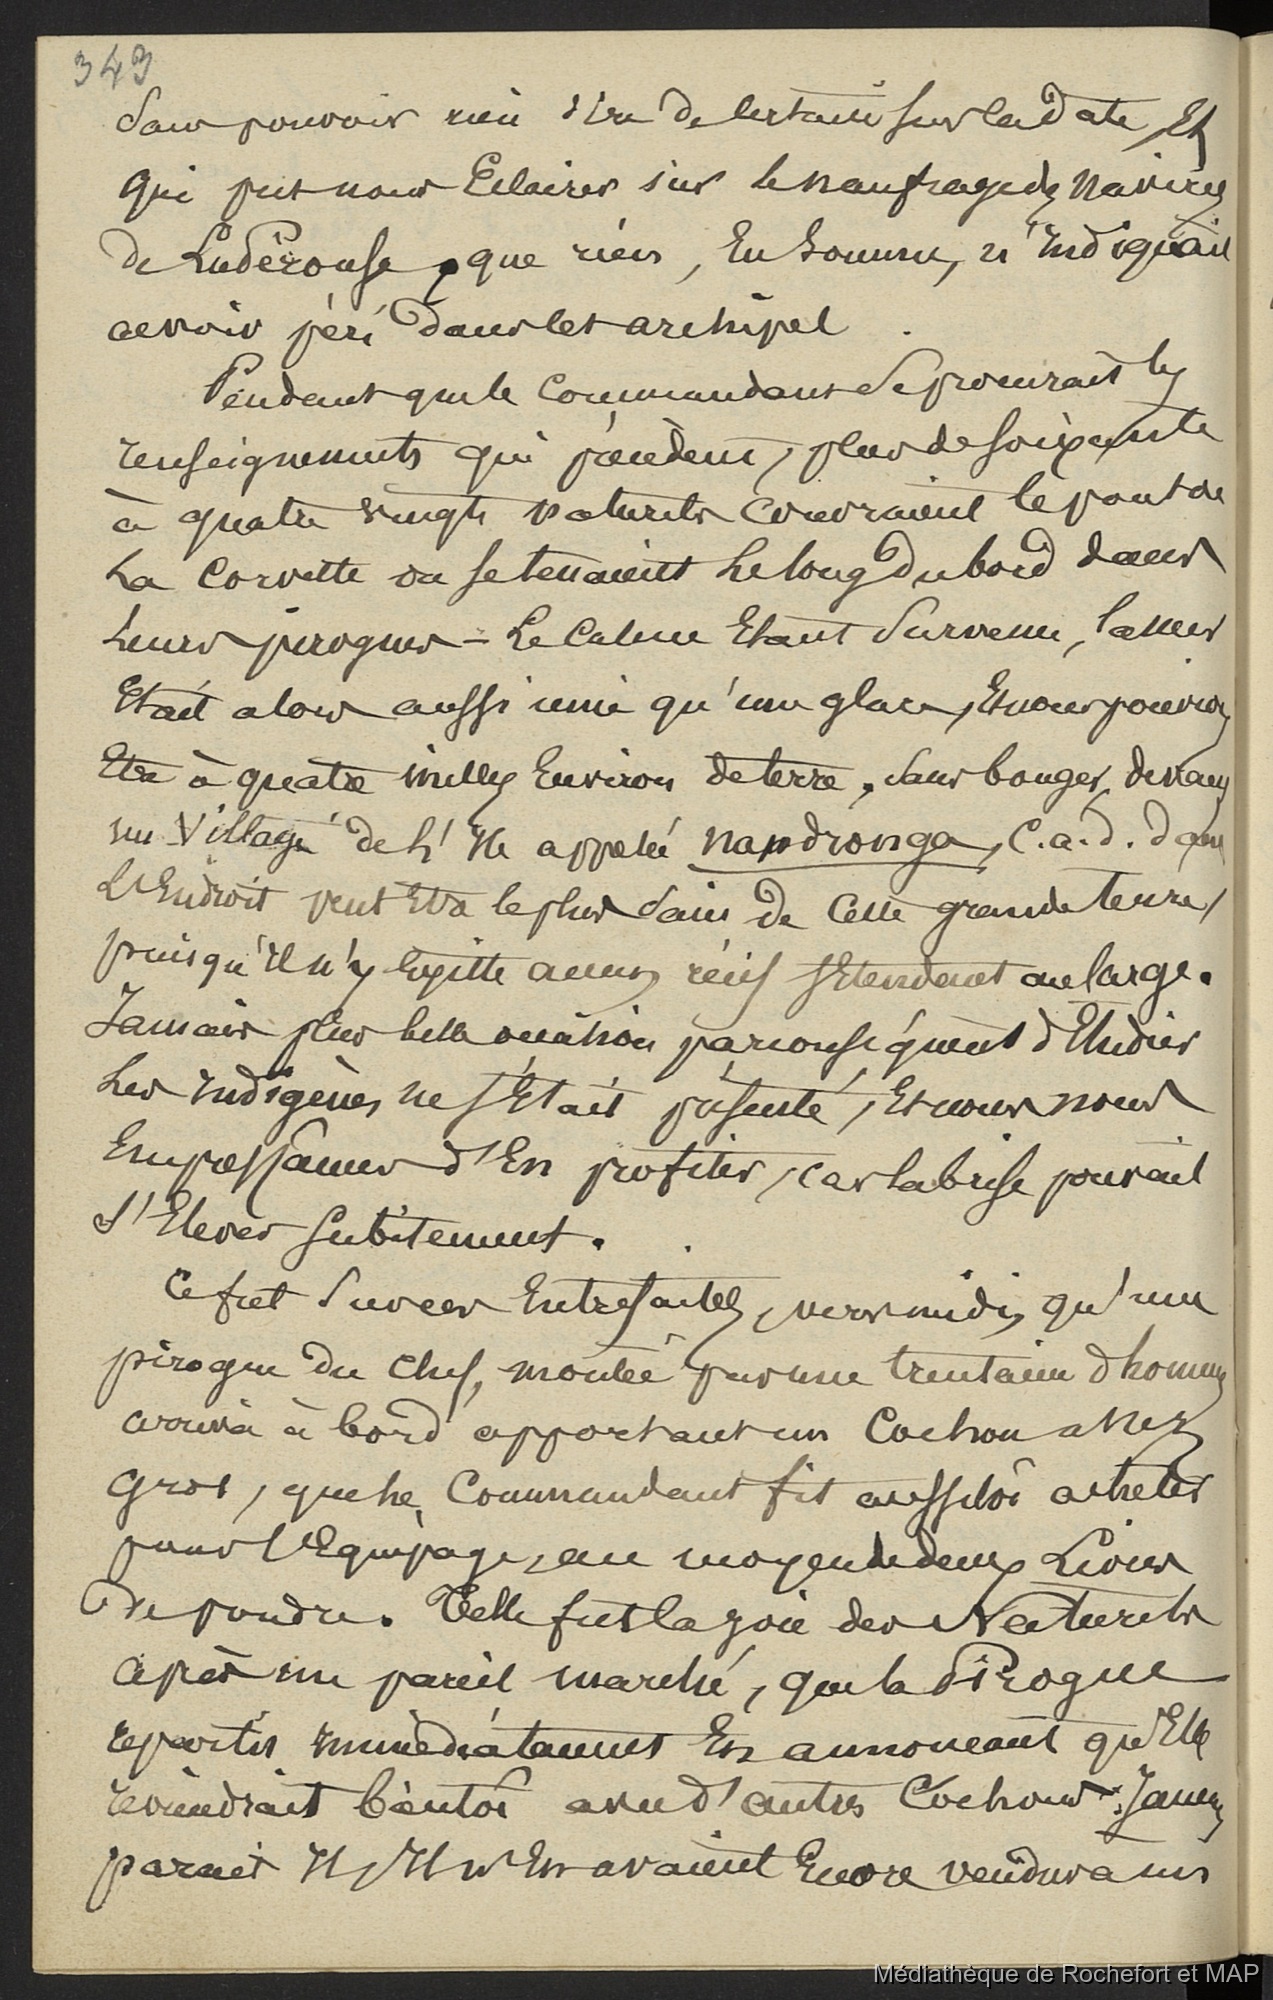 343
Sans pouvoir rien dire de certain sur la date, Et
qui put nous Eclairer sur le naufrage des navires
de Lapérouse, que rien, En somme, n'indiquait
avoir péri dans cet archipel.
Pendant que le Commandant se procurait les
renseignements qui précèdent, plus de soixante
à quatre vingts naturels couvraient le pont de
La Corvette ou se tenaient Le long du bord dans
Leurs pirogues – Le Calme Etant Survenu, la mer
Etait alors aussi unie qu'une glace, Et nous pouvions
Etre à quatre milles Environ de terre, sans bouger, devant
un Village de L'Ile appelé Nandronga, C.a.d. dans
L'Endroit peut Etre le plus sain de Cette grande terre,
puisqu'Il n'y Existe aucun récif s'Etendant au large.
Jamais plus belle occasion par conséquent d'Etudier
Les Indigènes ne s'Etait présenté, Et nous nous
Empressâmes d'En profiter, car la brise pouvait
s'Elever Subitement.
Ce fut Sur ces Entrefaites, vers midi, qu'une
pirogue du Chef, montée par une trentaine d'hommes
arriva à bord apportant un Cochon assez
gros, que Le Commandant fit aussitôt acheter
pour l'Equipage, au moyen de deux Livres
de poudre. Telle fut la joie des Naturels
après un pareil marché, que la Pirogue
repartit Immédiatement En annonçant qu'Elle
reviendrait bientôt avec d'autres Cochons. Jamais
parait Il, Ils n'En avaient Encore vendus à un
Médiathèque de Rochefort et MAP